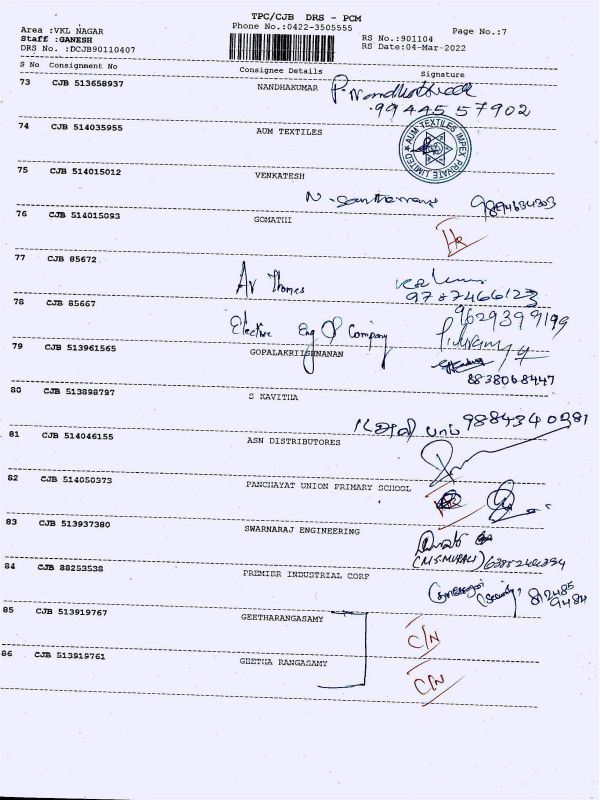 TPC/CJB DRS - PCM
Area :VKL NAGAR Phone No.:0422-3505555 Page No.:7
Staff :GANESH RS No.:901104
DRS No. :DCJB90110407 RS Date:04-Mar-2022
S No Consignment No Consignee Details Signature
73 CJB 513658937 NANDHAKUMAR
99445 57902
74 CJB 514035955 AUM TEXTILES
AUM TEXTILES IMPEX PRIVATE LIMITED
75 CJB 514015012 VENKATESH
76 CJB 514015093 GOMATHI
77 CJB 85672
Av Thomes
9787466123
78 CJB 85667
9629399199
Eng Company
79 CJB 513961565 GOPALAKRIISHNANAN
8838068447
80 CJB 513898797 S KAVITHA
9884340381
81 CJB 514046155 ASN DISTRIBUTORES
82 CJB 514050373 PANCHAYAT UNION PRIMARY SCHOOL
83 CJB 513937380 SWARNARAJ ENGINEERING
(M.S.MURALI)
84 CJB 88253538 PREMIER INDUSTRIAL CORP
85 CJB 513919767 GEETHARANGASAMY
C/N
86 CJB 513919761 GEETHA RANGASAMY
C/N